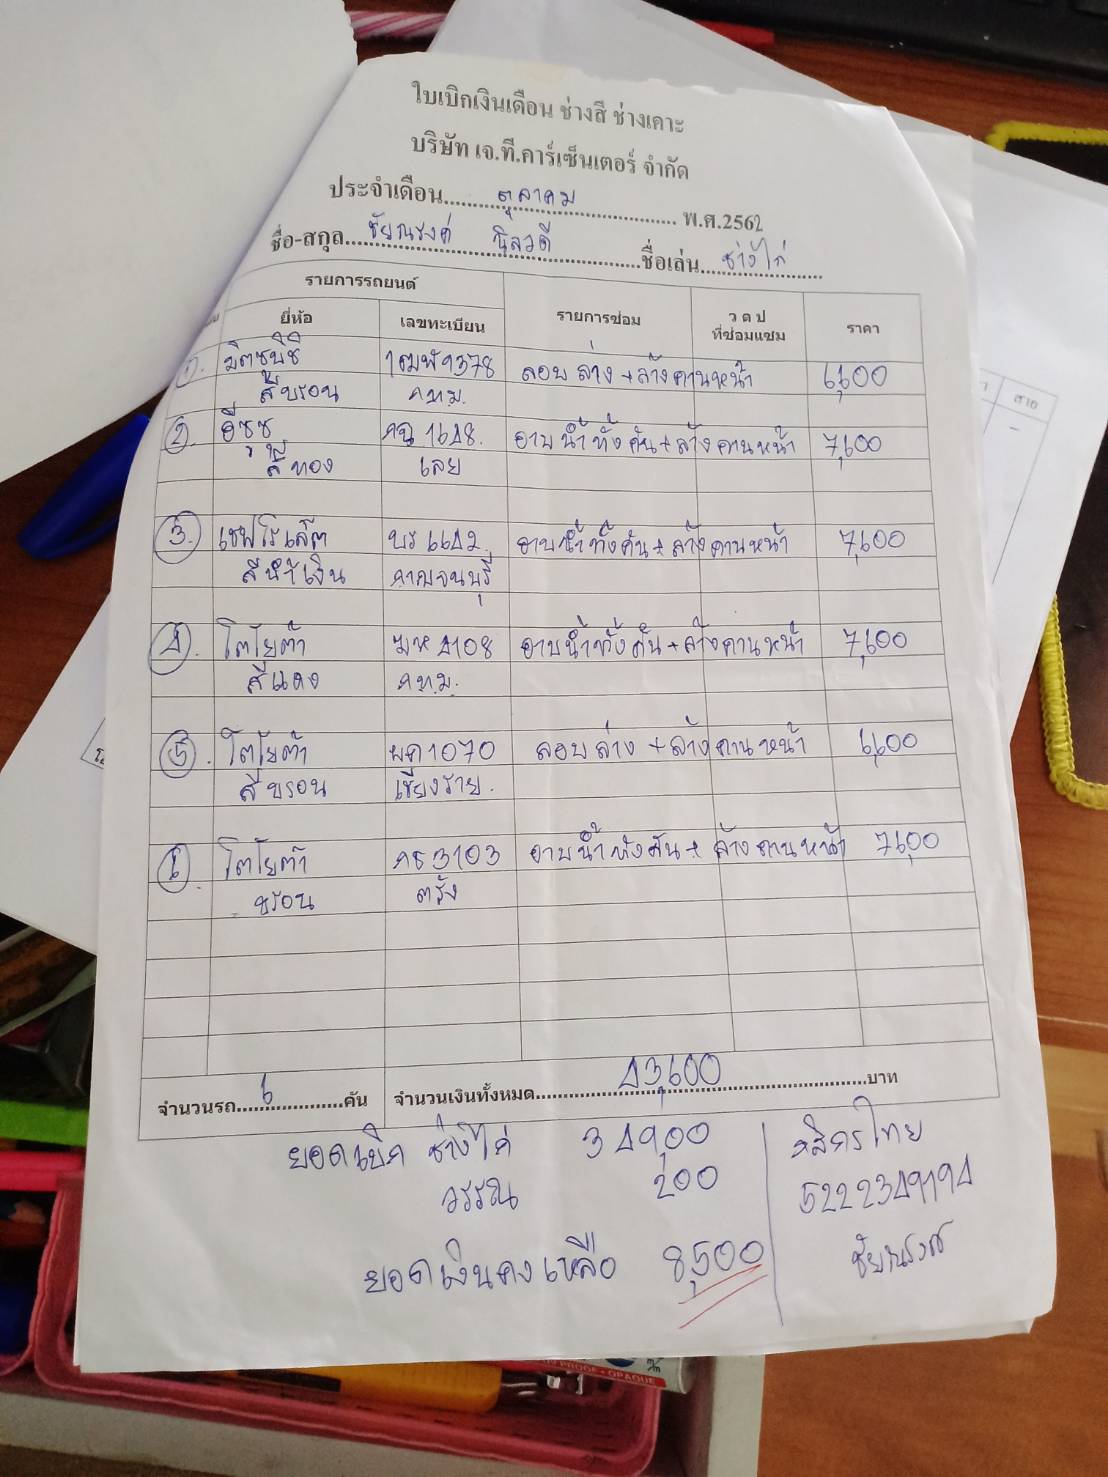 ใบเบิกเงินเดือน ช่างสี ช่างเคาะ
บริษัท เจ.ที.คาร์เซ็นเตอร์ จำกัด
ประจำเดือน ตุลาคม พ.ศ.2562
ชื่อ-สกุล ชัยณรงค์ นิลวดี ชื่อเล่น ช่างไก่
รายการรถยนต์ รายการซ่อม ว ด ป ที่ซ่อมแซม ราคา
ยี่ห้อ เลขทะเบียน
1. มิตซูบิชิ 1ฒฬ9378 ลอบล่าง + ล้างคานหน้า 6,600
สีบรอน กทม.
2. อีซูซุ กฉ 1648. อาบน้ำทั้งคัน + ล้างคานหน้า 7,600
สีทอง เลย
3. เชฟโรเล็ต บร 6642 อาบน้ำทั้งคัน + ล้างคานหน้า 7,600
สีน้ำเงิน กาญจนบุรี
4. โตโยต้า ฆห 4108 อาบน้ำทั้งคัน + ล้างคานหน้า 7,600
สีแดง กทม.
5. โตโยต้า ผก 1070 ลอบล่าง + ล้างคานหน้า 6,600
สีบรอน เชียงราย.
6. โตโยต้า กธ 3103 อาบน้ำทั้งคัน + ล้างคานหน้า 7,600
บรอน ตรัง
จำนวนรถ 6 คัน จำนวนเงินทั้งหมด 43,600 บาท
ยอดเบิก ช่างไก่ 34900 กสิกรไทย
วรรณ 200 5222349194
ยอดเงินคงเหลือ 8,500 ชัยณรงค์
สาย